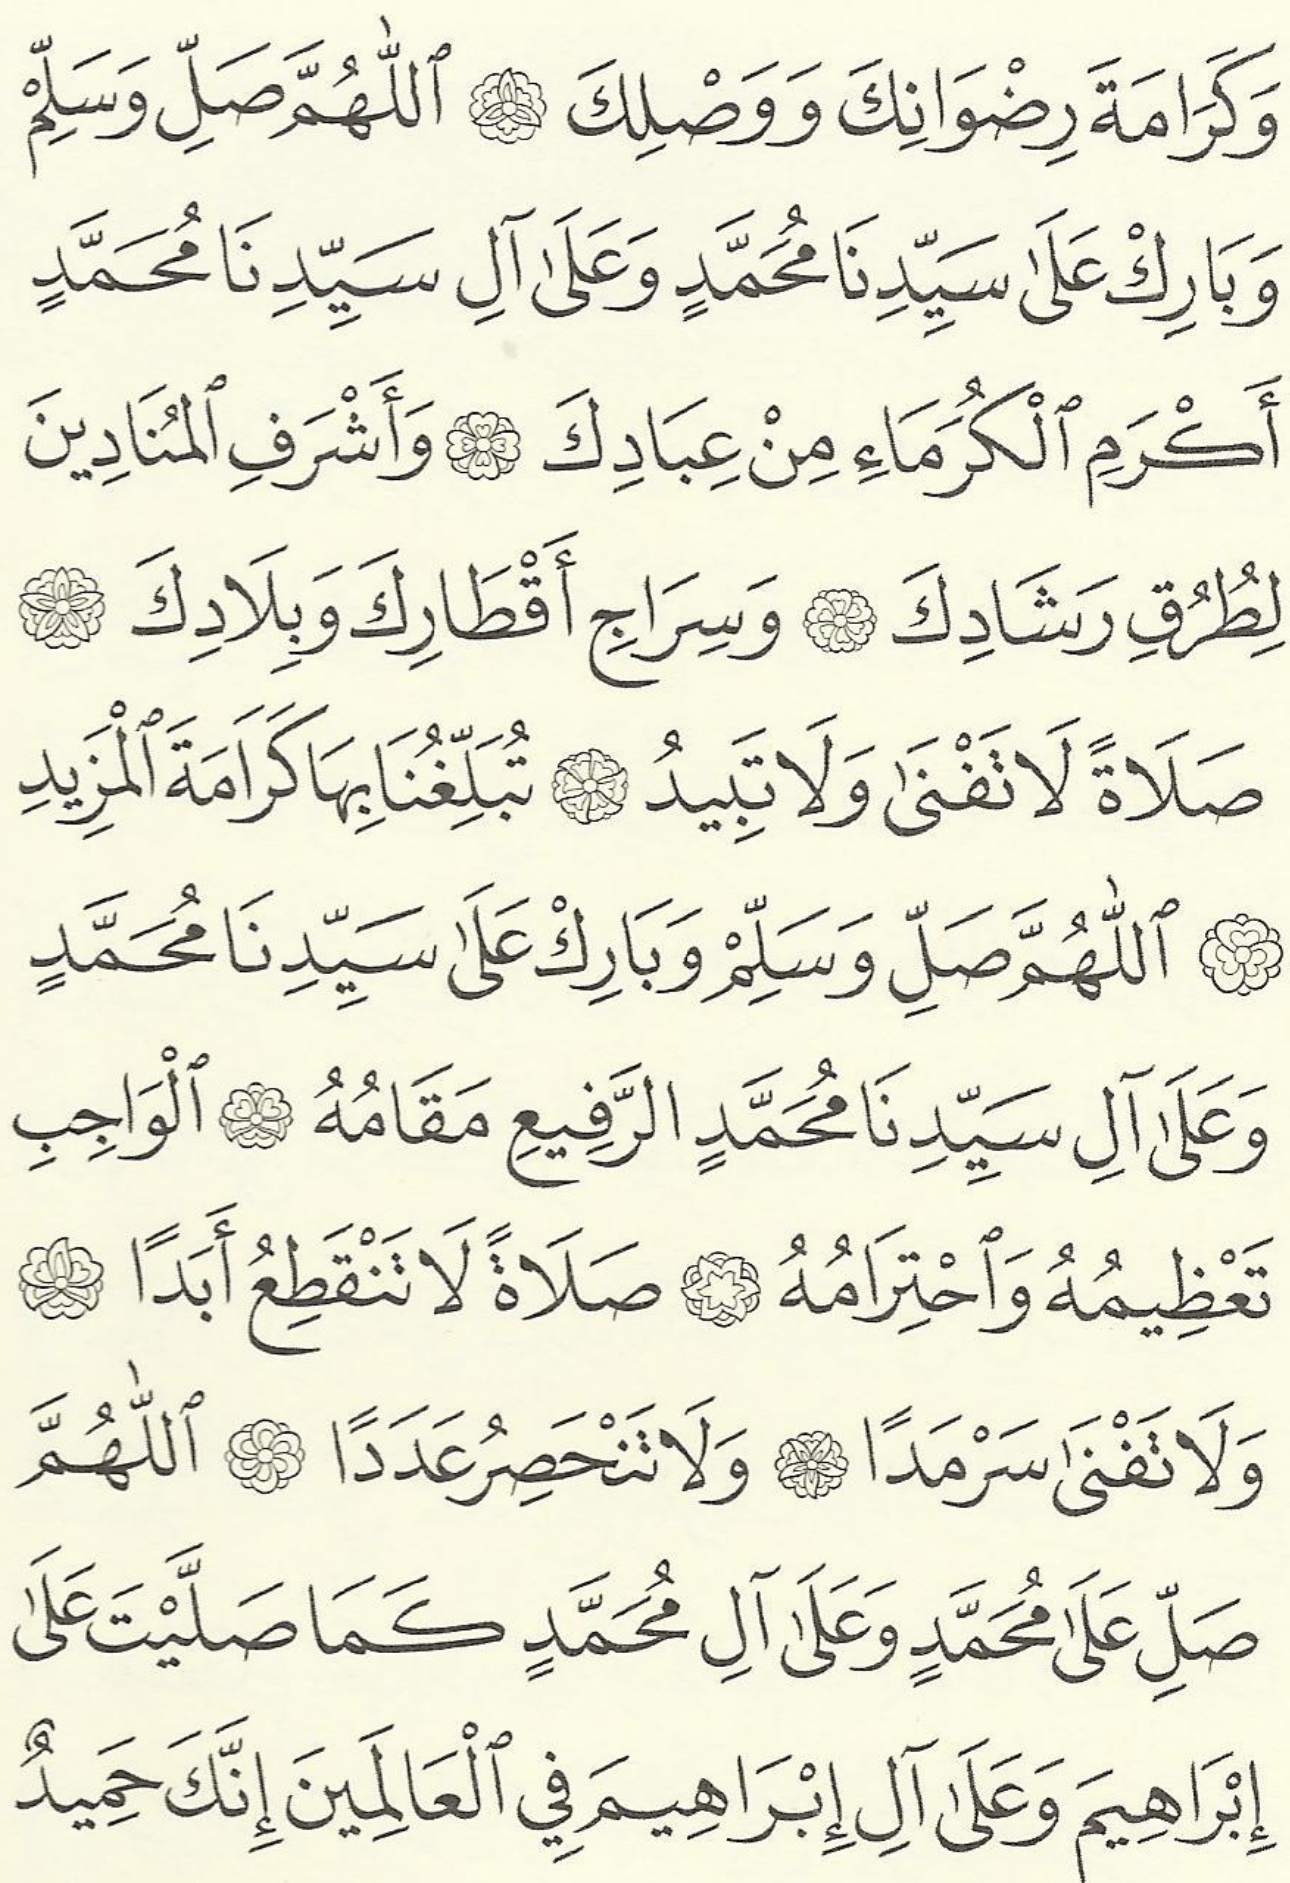 وَكَرَامَةَ رِضْوَانِكَ وَوَصْلِكَ ۞ ٱللّٰهُمَّ صَلِّ وَسَلِّمْ
وَبَارِكْ عَلَىٰ سَيِّدِنَا مُحَمَّدٍ وَعَلَىٰ آلِ سَيِّدِنَا مُحَمَّدٍ
أَكْرَمِ ٱلْكُرَمَاءِ مِنْ عِبَادِكَ ۞ وَأَشْرَفِ ٱلمُنَادِينَ
لِطُرُقِ رَشَادِكَ ۞ وَسِرَاجِ أَقْطَارِكَ وَبِلَادِكَ ۞
صَلَاةً لَا تَفْنَىٰ وَلَا تَبِيدُ ۞ تُبَلِّغُنَا بِهَا كَرَامَةَ ٱلْمَزِيدِ
۞ ٱللّٰهُمَّ صَلِّ وَسَلِّمْ وَبَارِكْ عَلَىٰ سَيِّدِنَا مُحَمَّدٍ
وَعَلَىٰ آلِ سَيِّدِنَا مُحَمَّدٍ الرَّفِيعِ مَقَامُهُ ۞ ٱلْوَاجِبِ
تَعْظِيمُهُ وَٱحْتِرَامُهُ ۞ صَلَاةً لَا تَنْقَطِعُ أَبَدًا ۞
وَلَا تَفْنَىٰ سَرْمَدًا ۞ وَلَا تَنْحَصِرُ عَدَدًا ۞ ٱللّٰهُمَّ
صَلِّ عَلَىٰ مُحَمَّدٍ وَعَلَىٰ آلِ مُحَمَّدٍ كَمَا صَلَّيْتَ عَلَىٰ
إِبْرَاهِيمَ وَعَلَىٰ آلِ إِبْرَاهِيمَ فِي ٱلْعَالَمِينَ إِنَّكَ حَمِيدٌ